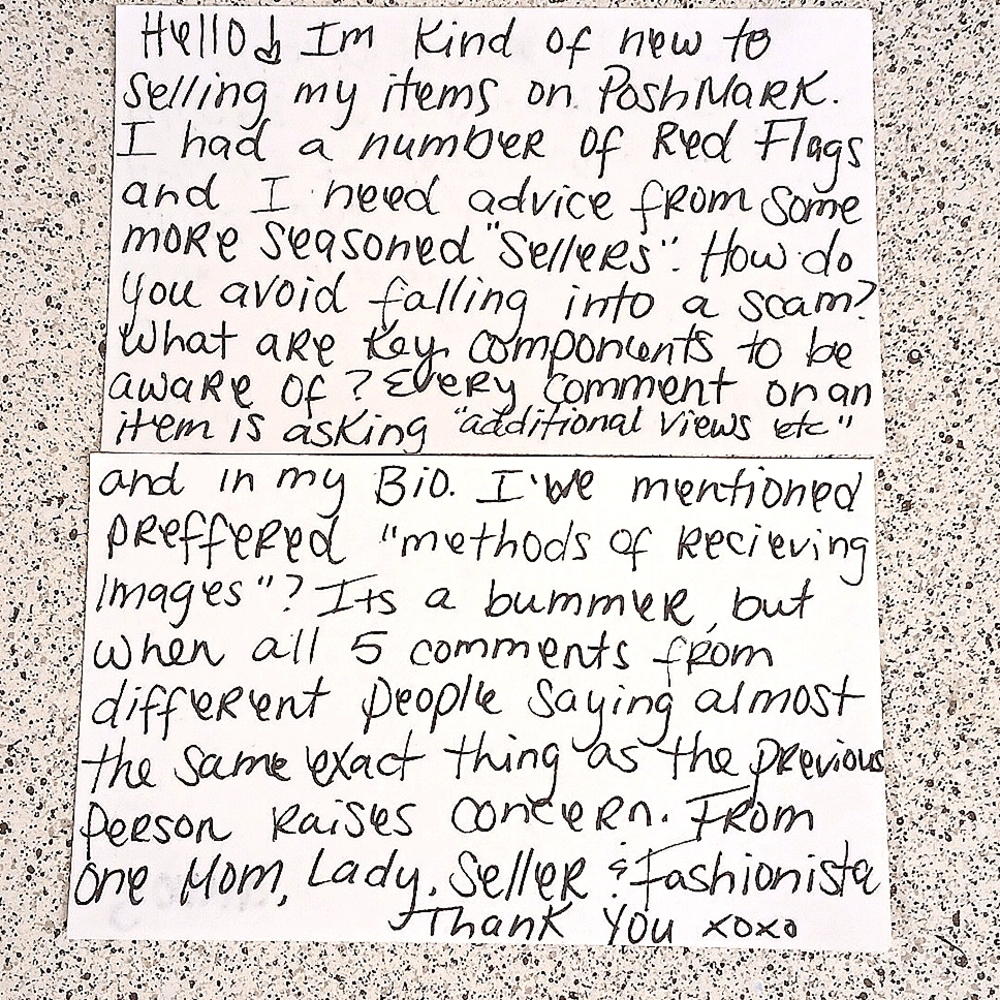 Hello! Im kind of new to
selling my items on PoshMark.
I had a number of Red Flags
and I need advice from some
more seasoned "Sellers". How do
you avoid falling into a scam?
What are key componunts to be
aware of? Every comment on an
item is asking "additional views etc"
and in my Bio. I've mentioned
preffered "methods of recieving
images"? Its a bummer, but
when all 5 comments from
different people saying almost
the same exact thing as the previous
person raises concern. From
one Mom, Lady, Seller & Fashionista
Thank You xoxo